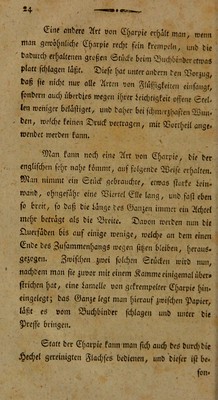 24
Eine andere Art von Charpie erhält man, wenn
man gewöhnliche Charpie recht fein krempeln, und die
dadurch erhaltenen großen Stücke beim Buchbinder etwas
platt schlagen läßt. Diese hat unter andern den Vorzug,
daß sie nicht nur alle Arten von Flüßigkeiten einsaugt,
sondern auch überdies wegen ihrer leichtigkeit offene Stel-
len weniger belästiget, und daher bei schmerzhaften Wun-
den, welche keinen Druck vertragen, mit Vortheil ange-
wendet werden kann.
Man kann noch eine Art von Charpie, die der
englischen sehr nahe kömmt, auf folgende Weise erhalten.
Man nimmt ein Stück gebrauchte, etwas starke lein-
wand, ohngefähr eine Viertel Elle lang, und fast eben
so breit, so daß die länge des Ganzen immer ein Achtel
mehr beträgt als die Breite. Davon werden nun die
Querfäden bis auf einige wenige, welche an dem einen
Ende des Zusammenhangs wegen sitzen bleiben, heraus-
gezogen. Zwischen zwei solchen Stücken wird nun,
nachdem man sie zuvor mit einem Kamme einigemal über-
strichen hat, eine lamelle von gekrempelter Charpie hin-
eingelegt; das Ganze legt man hierauf zwischen Papier,
läßt es vom Buchbinder schlagen und unter die
Presse bringen.
Statt der Charpie kann man sich auch des durch die
Hechel gereinigten Flachses bedienen, und dieser ist be-
son-